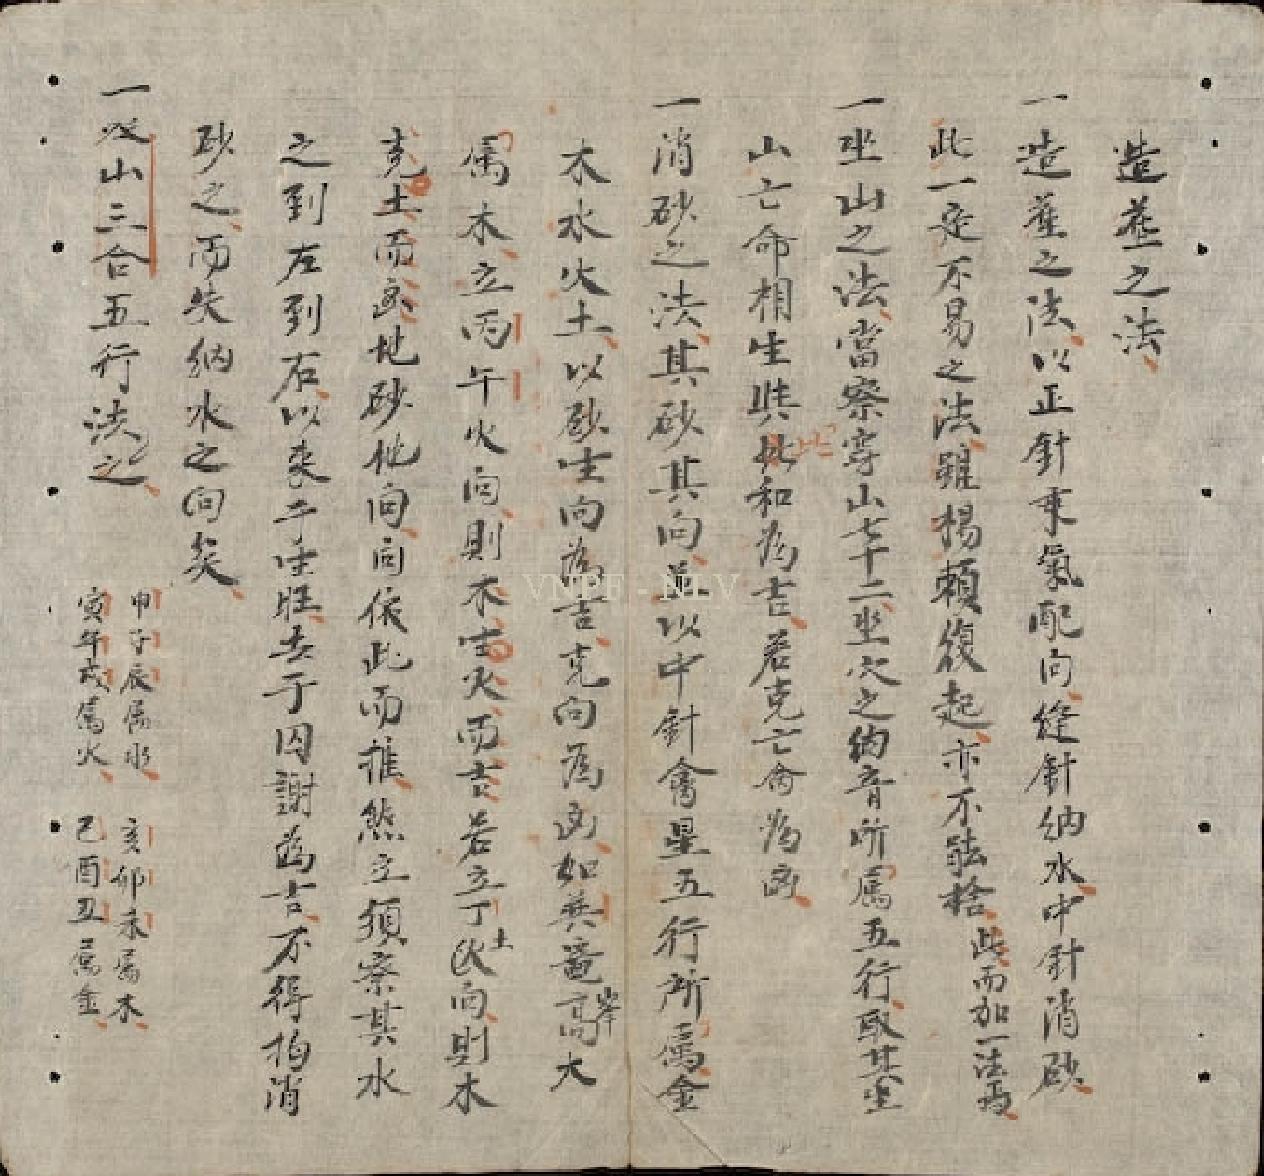 造葬之法
一造葬之法以正針乘氣配向縫針納水中針消砂
此一定不易之法雖楊賴復起亦不能捨此而加一法焉
一坐山之法當察穿山七十二坐穴之納音所属五行取其坐
山亡命相生與比和為吉若克亡命為凶
一消砂之法其砂其向並以中針禽星五行所属金
木水火土以砂生向為吉克向為凶如巽峯高大
属木立丙午火向則木生火而吉若立丁土向則木
克土而凶他砂他向同依此而推然立須察其水
之到左到右以来于生旺去于囚謝為吉不得拘消
砂之而失納水之向矣
一双山三合五行法之
申子辰属水 亥卯未属木
寅午戌属火 巳酉丑属金
VNPF - NLV